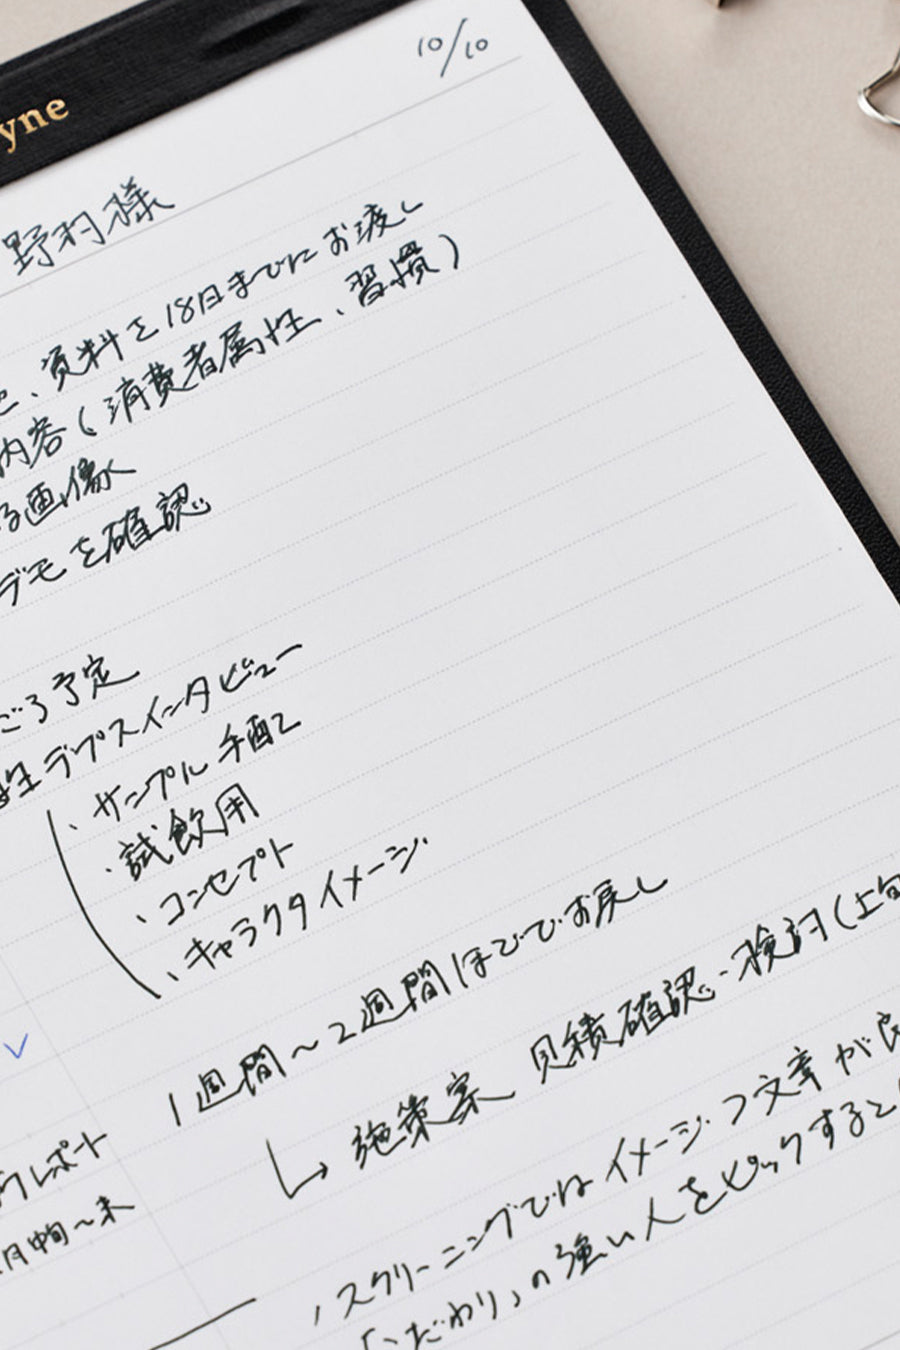 10/10
yne
野村様
、資料を18日までにお渡し
内容(消費者属性、習慣)
る画像
デモを確認
ごろ予定
デプスインタビュー
・サンプル手配
・試飲用
・コンセプト
・キャラクタイメージ
1週間〜2週間ほどでお戻し
↳ 施策案、見積確認・検討(上旬
レポート
月中旬〜末
スクリーニングではイメージ・文章が
「こだわり」の強い人をピックすると